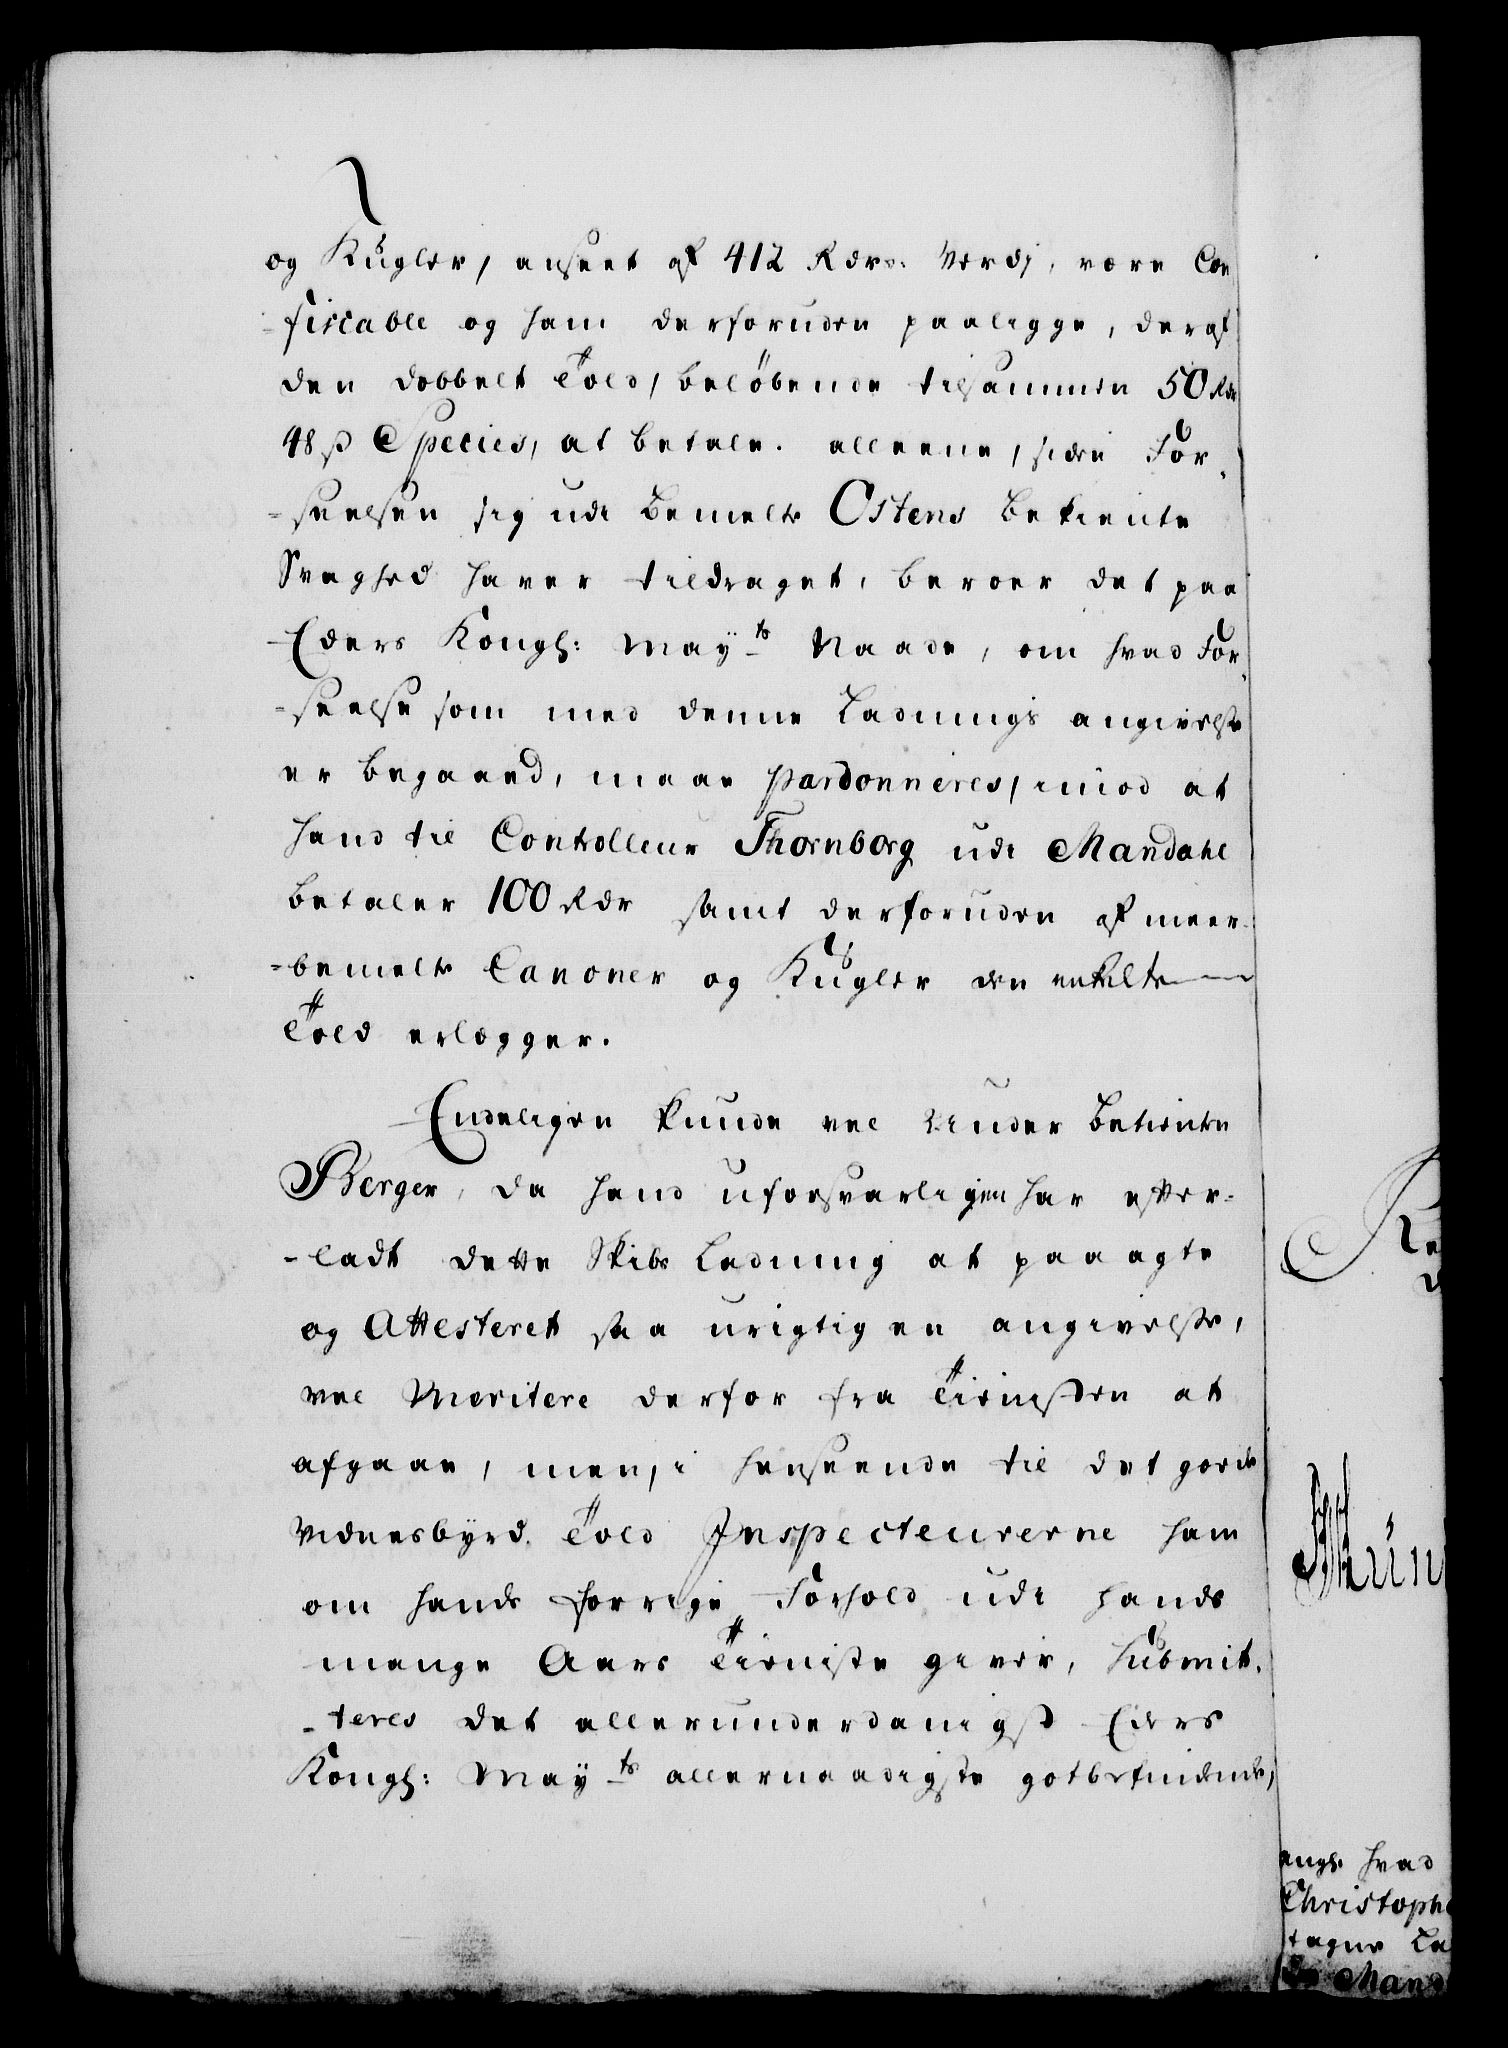 og Kugler, anseet af 412 Rdrs. Verdj, være Con
-fiscable og ham derforuden paalegge, deraf
den dobbelt Told, beløbende tilsammen 50 Rdr
48 ß Species, at betale. alleene, siden For-
-seelsen sig udi bemelte Ostens bekiente
Svaghed haver tildraget, beroer det paa
Eders Kongl: Mayts Naade, om hvad For-
-seelse som med denne Ladnings angivelse
er begaaed, maae pardonneres, imod at
hand til Controlleur Thornborg udi Mandahl
betaler 100 Rdr samt derforuden af meer-
-bemelte Canoner og Kugler den enkelte
Told erlægger.
Endeligen kunde vel Under betiente
Berger, da hand uforsvarligen har efter-
-ladt dette Skibs Ladning at paaagte
og Attesteret saa urigtig en angivelse,
vel Meritere derfor fra Tienesten at
afgaae, men, i henseende til det goede
Vidnesbyrd Told Inspecteurerne ham
om hands forrige Forhold udi hands
mange Aars Tieniste giver, submit-
-teres det allerunderdanigst Eders
Kongl: Mayts allernaadigste gotbefindende,
hvad
Christoph
tagne La
Mand